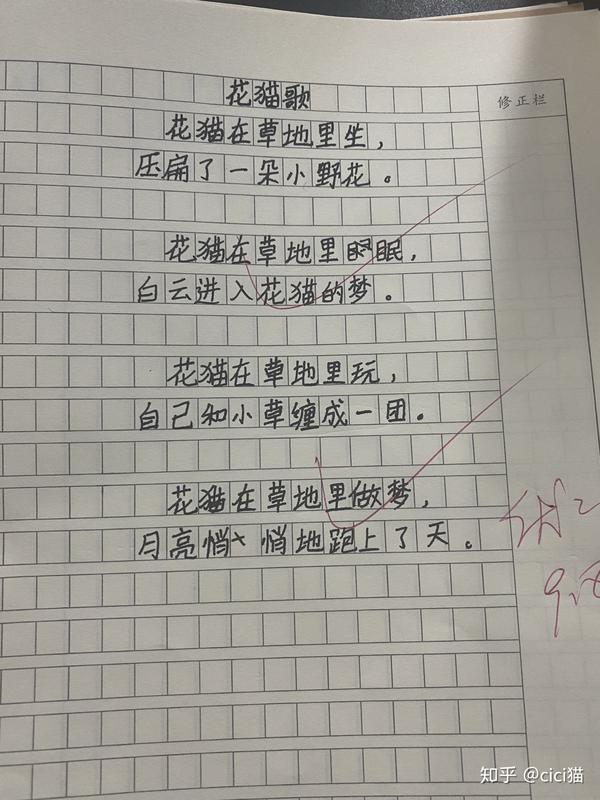 花猫歌
修正栏
花猫在草地里生，
压扁了一朵小野花。
花猫在草地里眠，
白云进入花猫的梦。
花猫在草地里玩，
自己和小草缠成一团。
花猫在草地里做梦，
月亮悄悄地跑上了天。
知乎 @cici猫